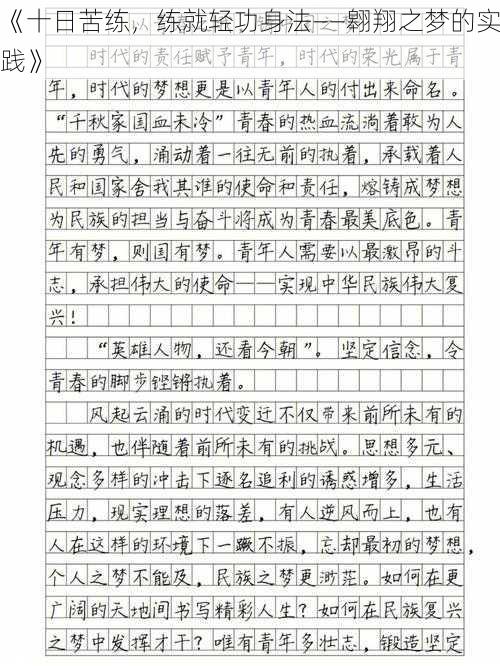 《十日苦练，练就轻功身法——翱翔之梦的实
践》
时代的责任赋予青年，时代的荣光属于青
年，时代的梦想更是以青年人的付出来命名。
“千秋家国血未冷”青春的热血流淌着敢为人
先的勇气，涌动着一往无前的执着，承载着人
民和国家舍我其谁的使命和责任，熔铸成梦想
为民族的担当与奋斗将成为青春最美底色。青
年有梦，则国有梦。青年人需要以最激昂的斗
志，承担伟大的使命——实现中华民族伟大复
兴！
“英雄人物，还看今朝”。坚定信念，令
青春的脚步铿锵执着。
风起云涌的时代变迁不仅带来前所未有的
机遇，也伴随着前所未有的挑战。思想多元、
观念多样的冲击下逐名追利的诱惑增多，生活
压力，现实理想的落差，有人逆风而上，也有
人在这样的环境下一蹶不振，忘却最初的梦想，
个人之梦不能及，民族之梦更渺茫。如何在更
广阔的天地间书写精彩人生？如何在民族复兴
之梦中发挥才干？唯有青年多壮志，锻造坚定